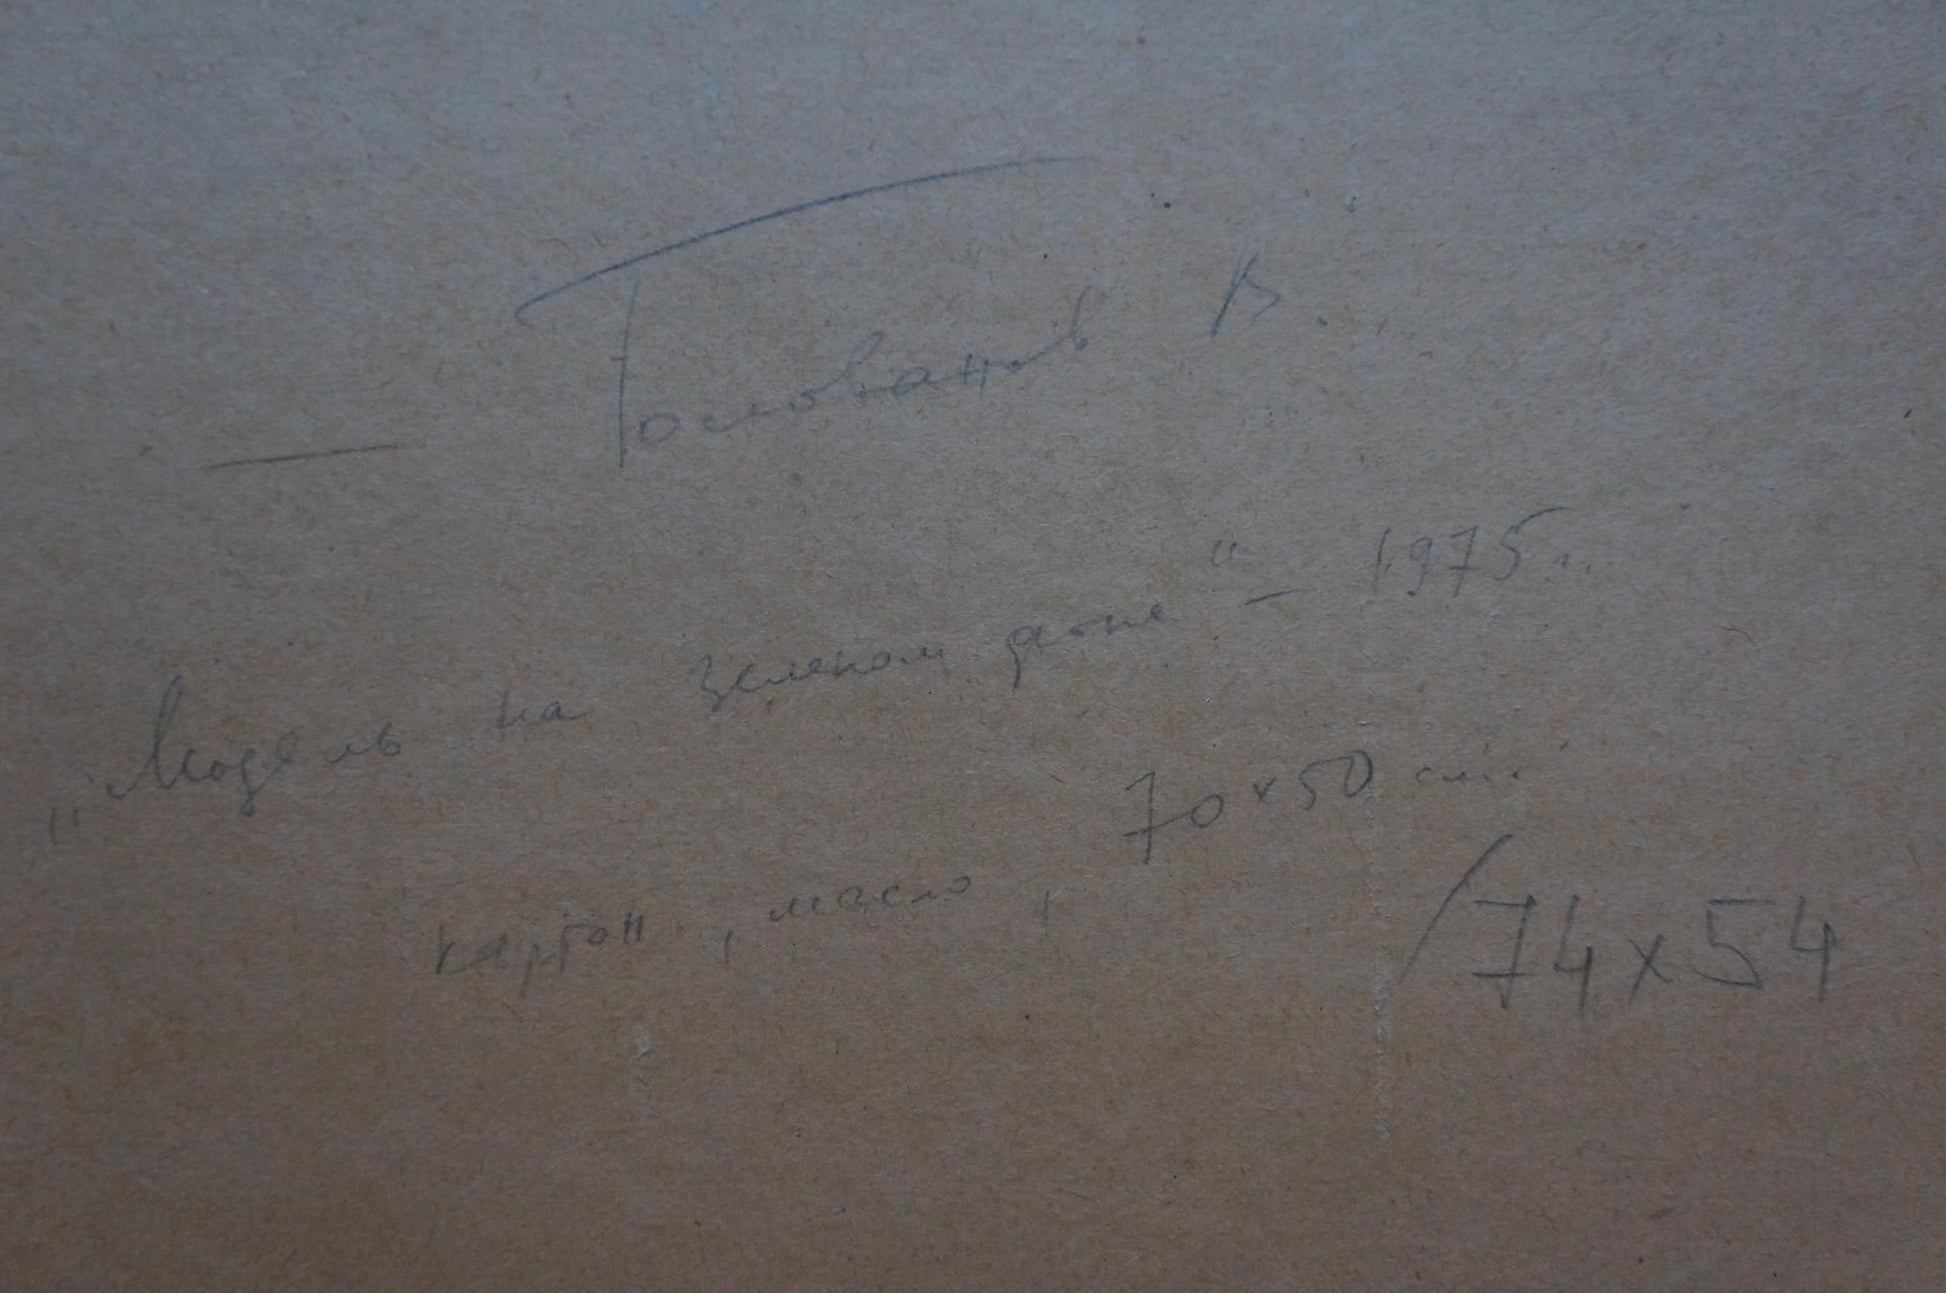 — Голованов В.
„Модель на зеленом фоне“ — 1975 г.
картон, масло, 70×50 см.
/74×54